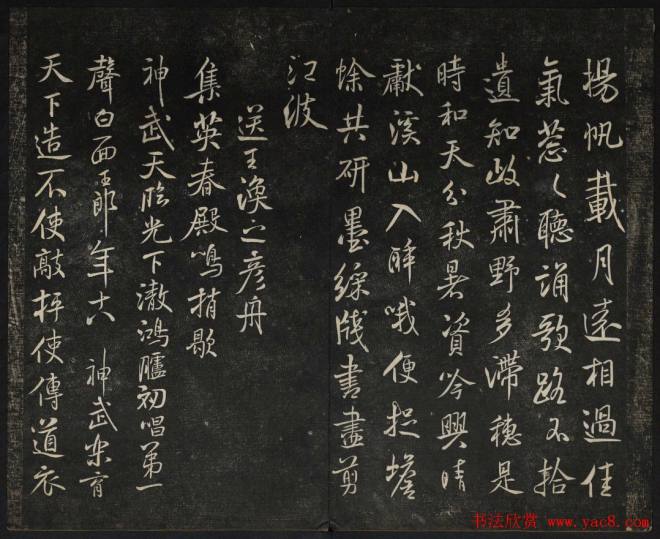 揚帆載月遠相過佳
氣葱々聽誦歌路不拾
遺知政肅野多滯穗是
時和天分秋暑資吟興晴
獻溪山入醉哦便捉蟾
蜍共研墨綵牋書盡剪
江波
送王渙之彥舟
集英春殿鳴捎歇
神武天臨光下澈鴻臚初唱第一
聲白面玉郎年十八 神武樂育
天下造不使敲枰使傳道衣
书法欣赏 www.yac8.com